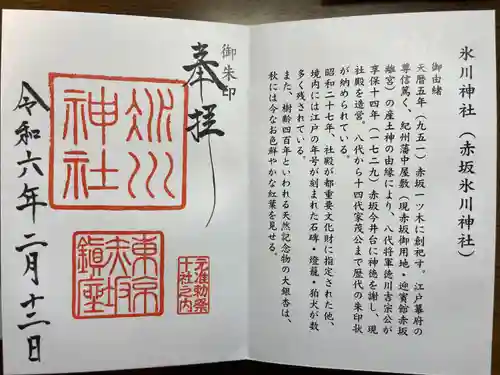 氷川神社（赤坂氷川神社）
御由緒
天暦五年（九五一）赤坂一ツ木に創祀す。江戸幕府の
尊信篤く、紀州藩中屋敷（現赤坂御用地・迎賓館赤坂
離宮）の産土神の由縁により、八代将軍徳川吉宗公が
享保十四年（一七二九）赤坂今井台に神徳を謝し、現
社殿を造営。八代から十四代家茂公まで歴代の朱印状
が納められている。
昭和二十七年、社殿が都重要文化財に指定された他、
境内には江戸の年号が刻まれた石碑・燈籠・狛犬が数
多く残されている。
また、樹齢四百年といわれる天然記念物の大銀杏は、
秋には今なお色鮮やかな紅葉を見せる。
御朱印
奉拝
氷川
神社
東京
赤坂
鎮座
元准勅祭
十社之内
令和六年二月十二日